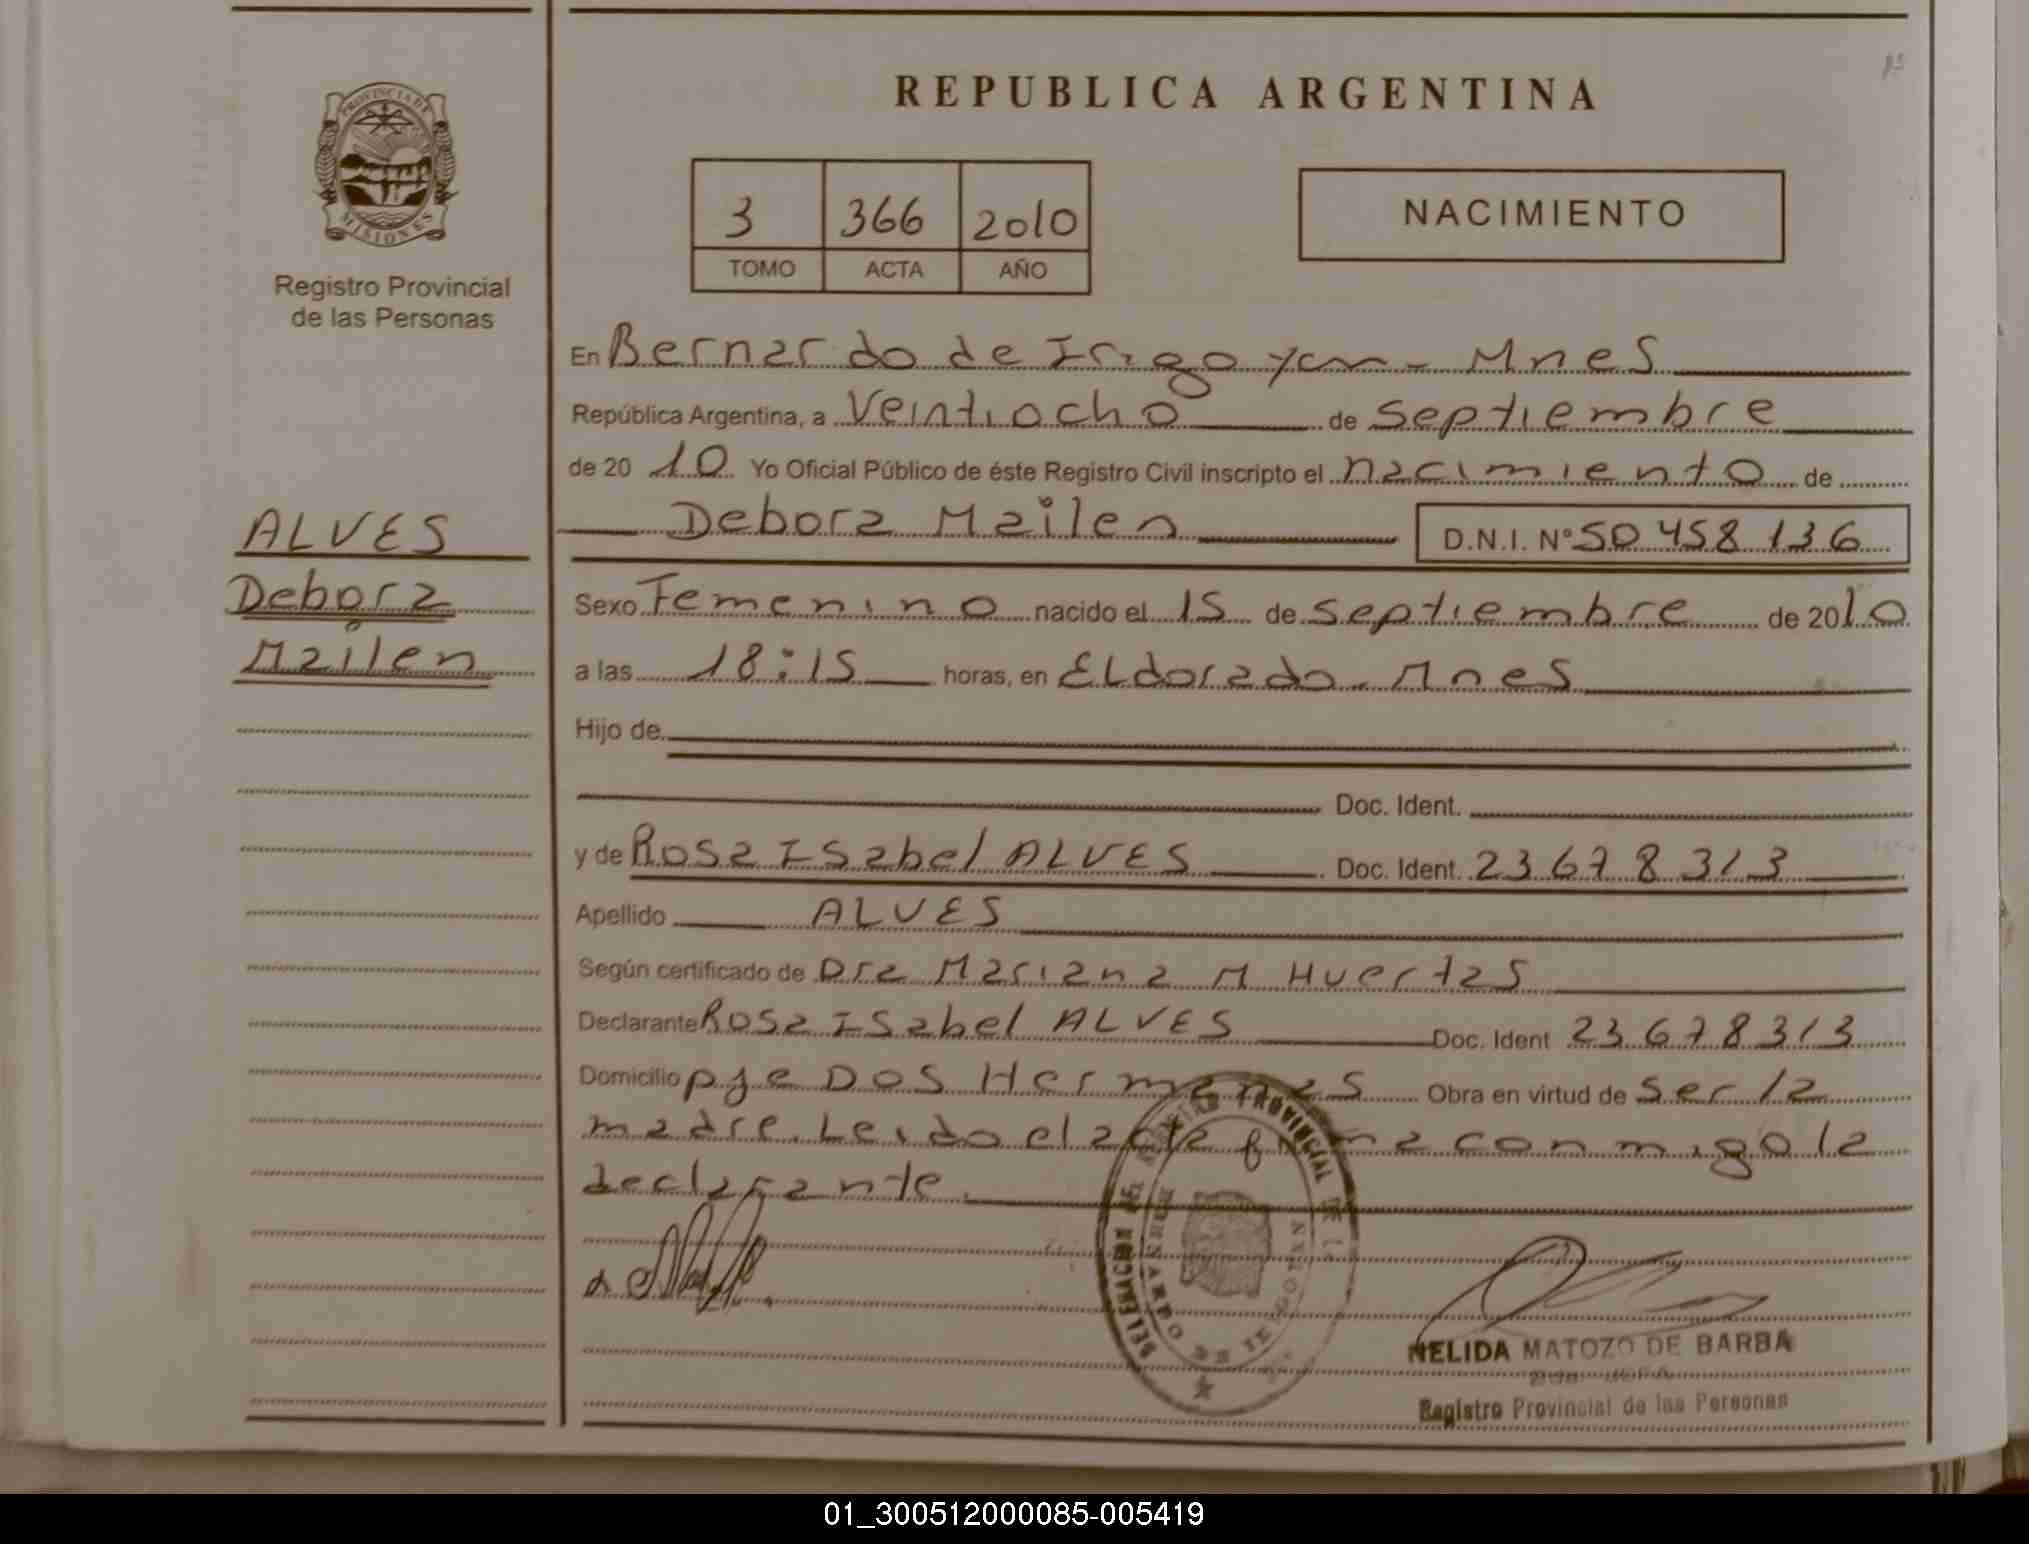 REPUBLICA ARGENTINA
PROVINCIA DE
MISIONES
Registro Provincial
de las Personas
3 366 2010
TOMO ACTA AÑO
NACIMIENTO
En Bernardo de Irigoyen - Mnes
República Argentina, a Veintiocho de Septiembre
de 20 10 Yo Oficial Público de éste Registro Civil inscripto el nacimiento de
Debora Mailen D.N.I. Nº 50 458 136
ALVES
Debora
Mailen
Sexo Femenino nacido el 15 de Septiembre de 2010
a las 18:15 horas, en ELdorado - Mnes
Hijo de
Doc. Ident.
y de Rosa Isabel ALVES Doc. Ident. 23 678 313
Apellido ALVES
Según certificado de Dra Mariana M Huertas
Declarante Rosa Isabel ALVES Doc. Ident 23 678 313
Domicilio pje Dos Hermanas Obra en virtud de Ser la
madre. Leido el acta firma conmigo la
declarante.
DELEGACION DEL REGISTRO PROVINCIAL DE
BERNARDO DE IRIGOYEN
NELIDA MATOZO DE BARBA
JEFA
Registro Provincial de las Personas
01_300512000085-005419